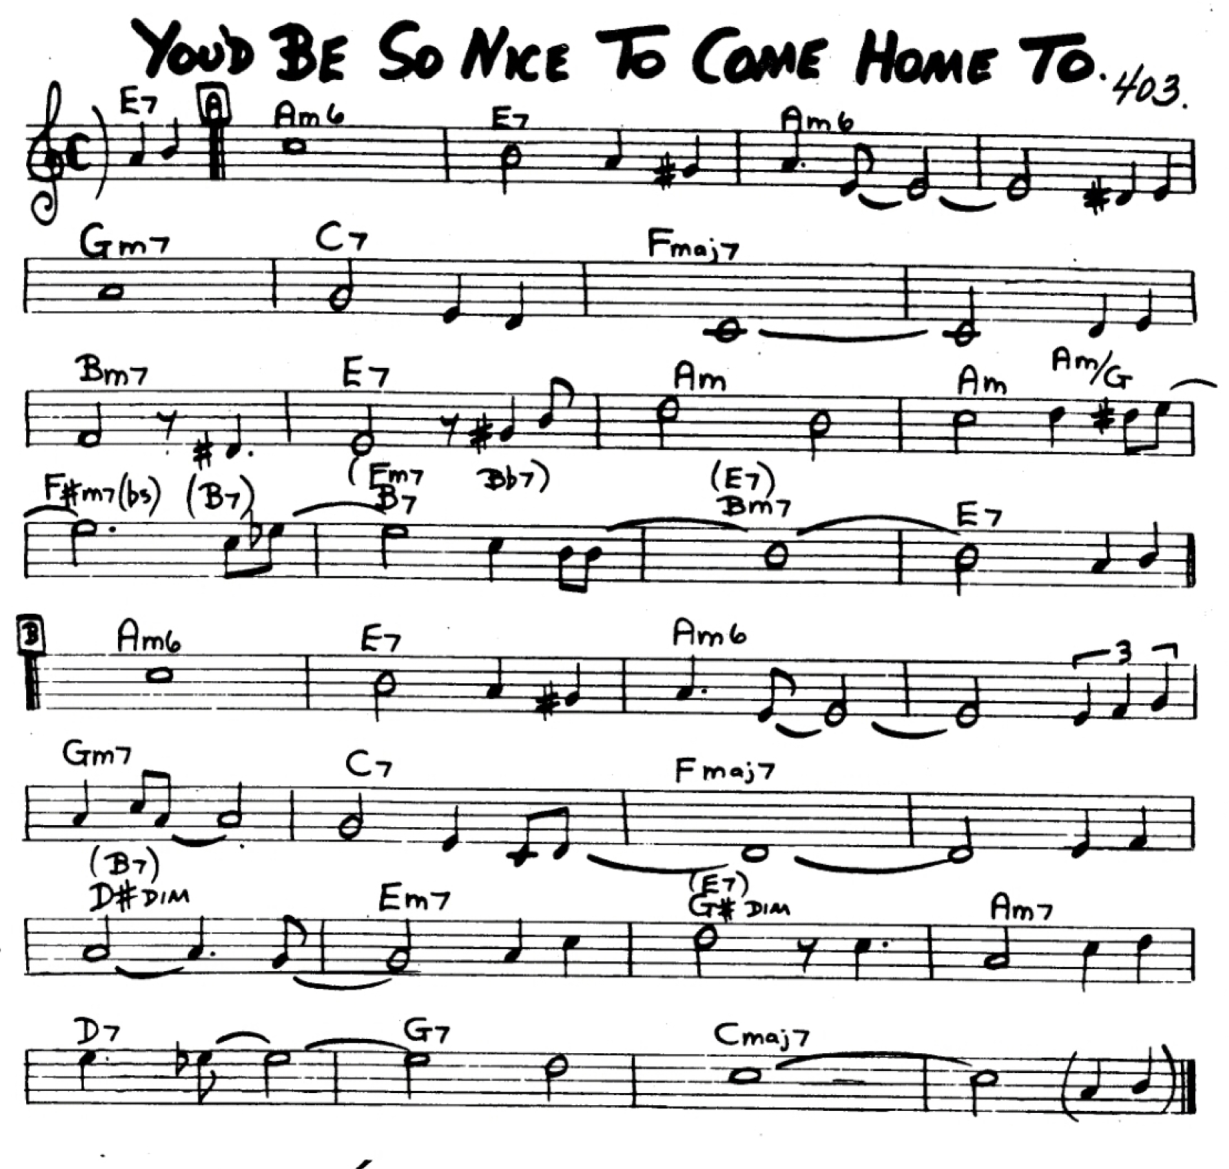 YOU'D BE SO NICE TO COME HOME TO. 403.
E7 A Am6 E7 Am6
Gm7 C7 Fmaj7
Bm7 E7 Am Am Am/G
F#m7(b5) (B7) (Fm7 Bb7) B7 (E7) Bm7 E7
B Am6 E7 Am6 3
Gm7 C7 Fmaj7
(B7) (E7)
D# DIM Em7 G# DIM Am7
D7 G7 Cmaj7